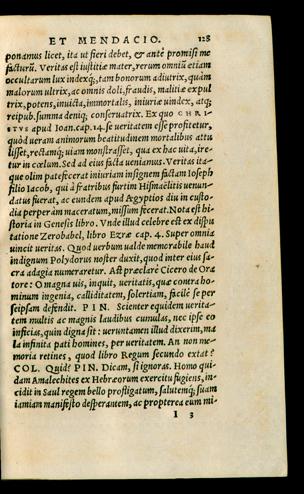 ET MENDACIO. 128
ponamus licet, ita ut fieri debet, & antè promisi me
facturũ. Veritas est iustitiæ mater, rerum omniũ etiam
occultarum lux indexq́;, tam bonorum adiutrix, quàm
malorum ultrix, ac omnis doli, fraudis, malitiæ expul
trix, potens, inuicta, immortalis, iniuriæ uindex, atq;
reipub. summa deniq; conseruatrix. Ex quo CHRI-
STVS apud Ioan. cap. 14. se ueritatem esse profitetur,
quòd ueram animorum beatitudinem mortalibus attu
lisset, rectamq́; uiam monstrasset, qua ex hac uita, ire-
tur in cœlum. Sed ad eius facta ueniamus. Veritas ita-
que olim patefecerat iniuriam insignem factam Ioseph
filio Iacob, qui à fratribus furtim Hismaëlitis uenun-
datus fuerat, ac eundem apud Ægyptios diu in custo-
dia perperàm maceratum, missum fecerat. Nota est hi-
storia in Genesis libro. Vnde illud celebre est ex dispu
tatione Zerobabel, libro Ezræ cap. 4. Super omnia
uincit ueritas. Quod uerbum ualde memorabile haud
indignum Polydorus noster duxit, quod inter eius sa-
cra adagia numeraretur. Ast præclarè Cicero de Ora
tore: O magna uis, inquit, ueritatis, quæ contra ho-
minum ingenia, calliditatem, solertiam, facilè se per
seipsam defendit. PIN. Scienter equidem uerita-
tem multis ac magnis laudibus cumulas, nec ipse eo
inficias, quin digna sit: ueruntamen illud dixerim, ma
la infinita pati homines, per ueritatem. An non me-
moria retines, quod libro Regum secundo extat?
COL. Quid? PIN. Dicam, si ignoras. Homo qui-
dam Amalechites ex Hebræorum exercitu fugiens, in-
cidit in Saul regem bello profligatum, salutemq́; suam
iamiam manifestò desperantem, ac propterea eum mi-
I 3